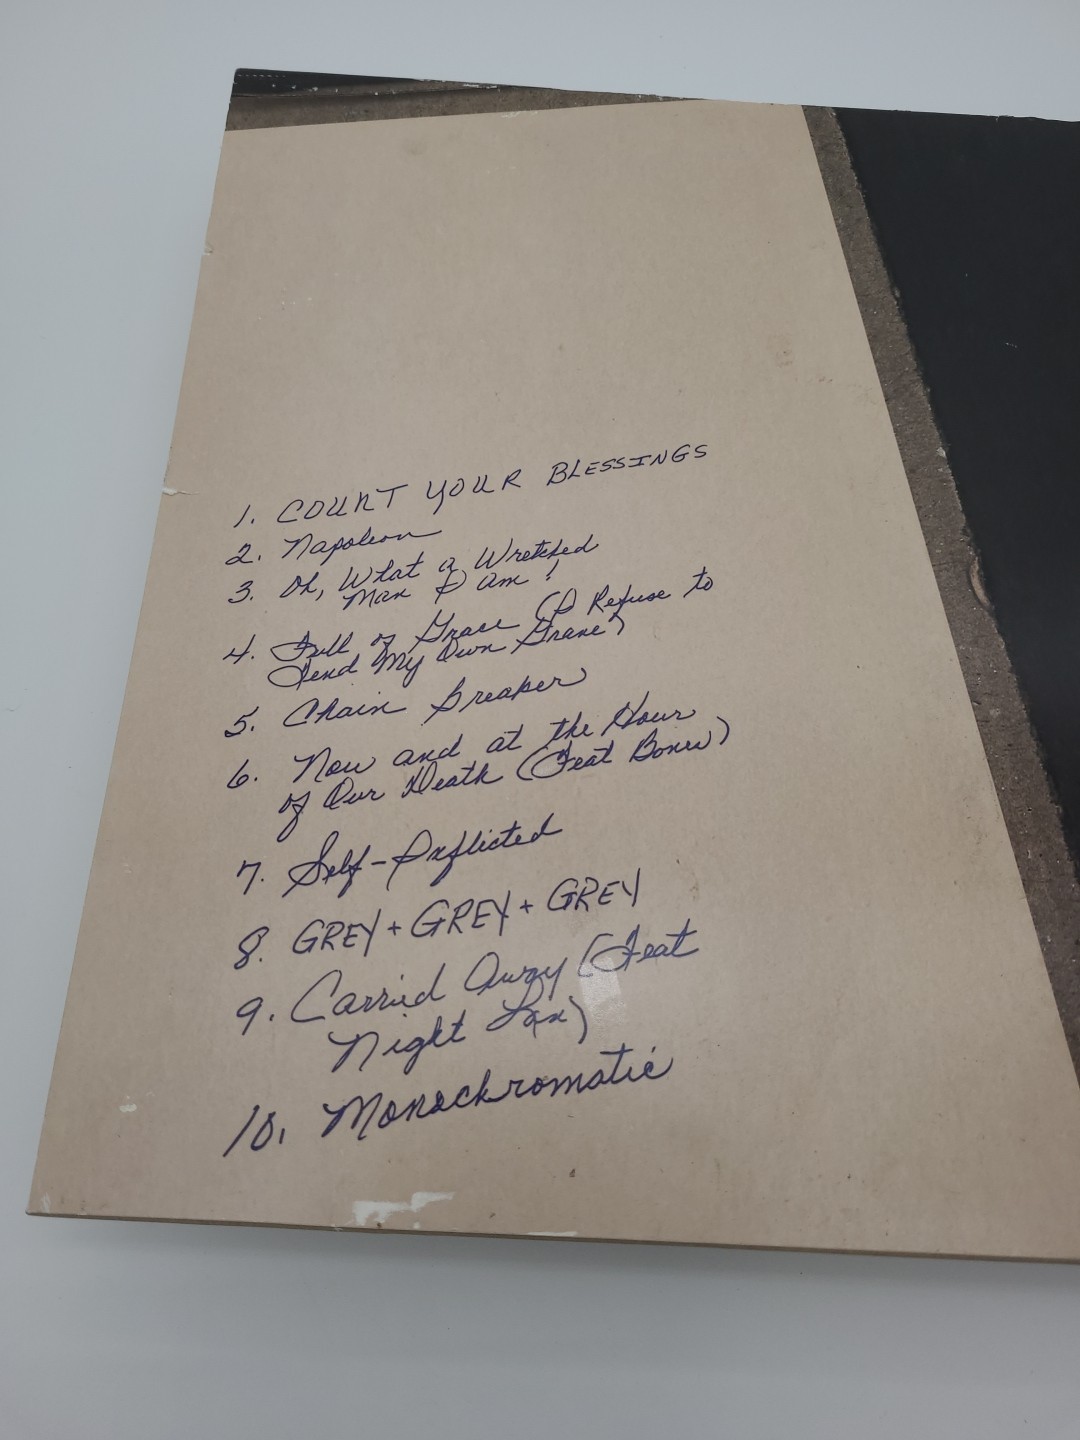 1. COUNT YOUR BLESSINGS
2. Napoleon
3. Oh, What a Wretched
Man I am!
4. Full of Grace (I Refuse to
Tend My Own Grave)
5. Chain breaker
6. Now and at the Hour
of Our Death (Feat Bones)
7. Self-Inflicted
8. GREY + GREY + GREY
9. Carried Away (Feat
Night Lox)
10. Monochromatic